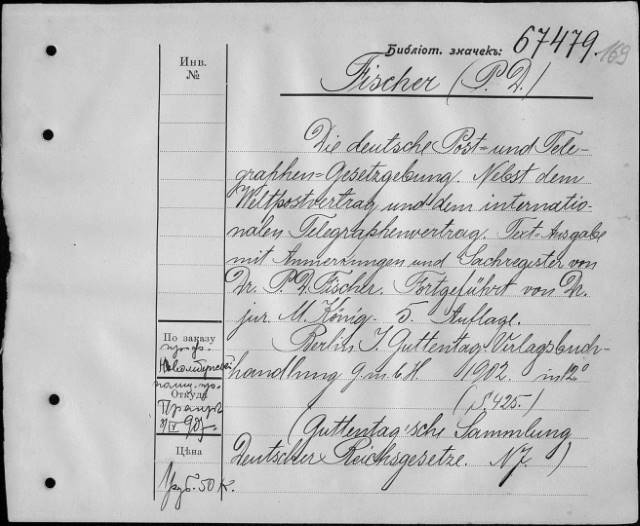 Библіот. значекъ: 67479. 169
Инв.
№
Fischer (P. D.)
Die deutsche Post= und Tele-
graphen=Gesetzgebung. Nebst dem
Weltpostvertrag und dem internatio-
nalen Telegraphenvertrag. Text-Ausgabe
mit Anmerkungen und Sachregister von
Dr. P. D. Fischer. Fortgeführt von Dr.
jur. M. König. 5. Auflage.
Berlin, J. Guttentag Verlagsbuch-
handlung G. m. b. H. 1902. in 12°
(S 425.)
(Guttentag'sche Sammlung
Deutscher Reichsgesetze. N 7. )
По заказу
проф.
Откуда
905
Цѣна
1 руб. 50 к.